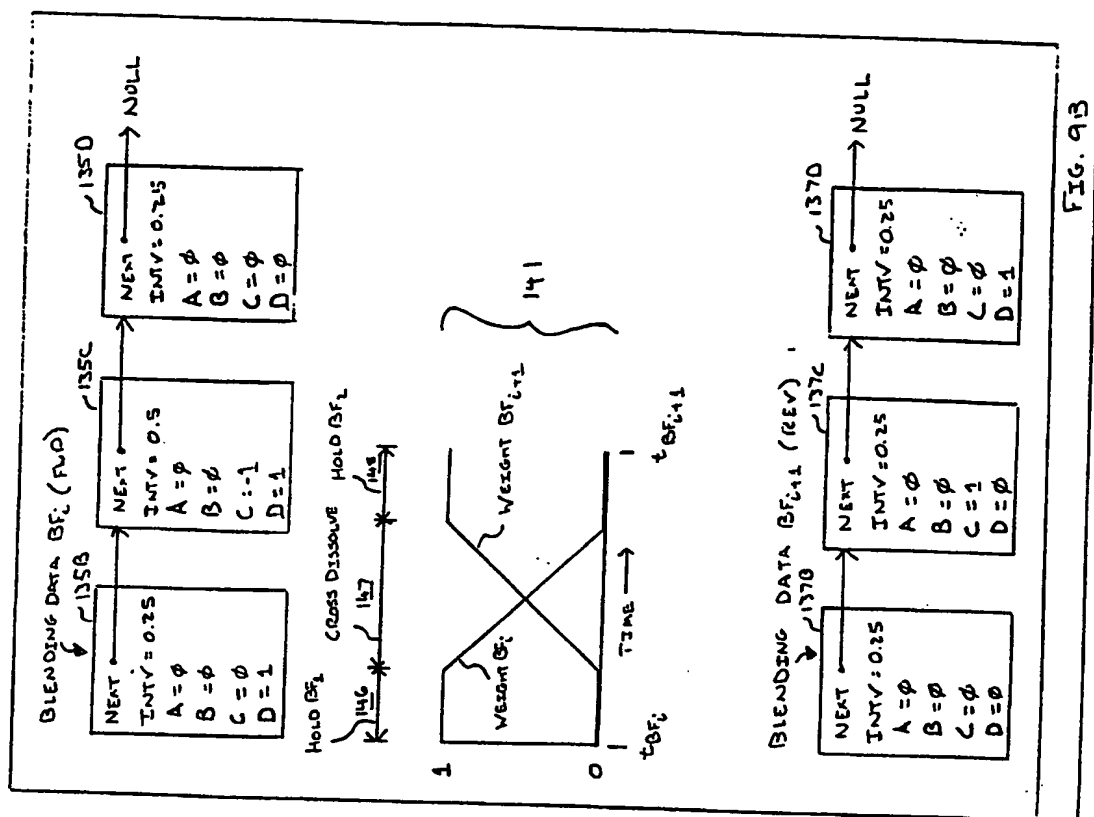 BLENDING DATA BFi (FWD)
135B
NEXT
INTV = 0.25
A = φ
B = φ
C = φ
D = 1
135C
NEXT
INTV = 0.5
A = φ
B = φ
C = -1
D = 1
135D
NEXT
INTV = 0.25
A = φ
B = φ
C = φ
D = φ
NULL
HOLD BF1
146
CROSS DISSOLVE
147
HOLD BF2
148
1
0
WEIGHT BFi
WEIGHT BFi+1
141
TIME →
tBFi
tBFi+1
BLENDING DATA BFi+1 (REV)
137B
NEXT
INTV = 0.25
A = φ
B = φ
C = φ
D = φ
137C
NEXT
INTV = 0.25
A = φ
B = φ
C = 1
D = φ
137D
NEXT
INTV = 0.25
A = φ
B = φ
C = φ
D = 1
NULL
FIG. 9B